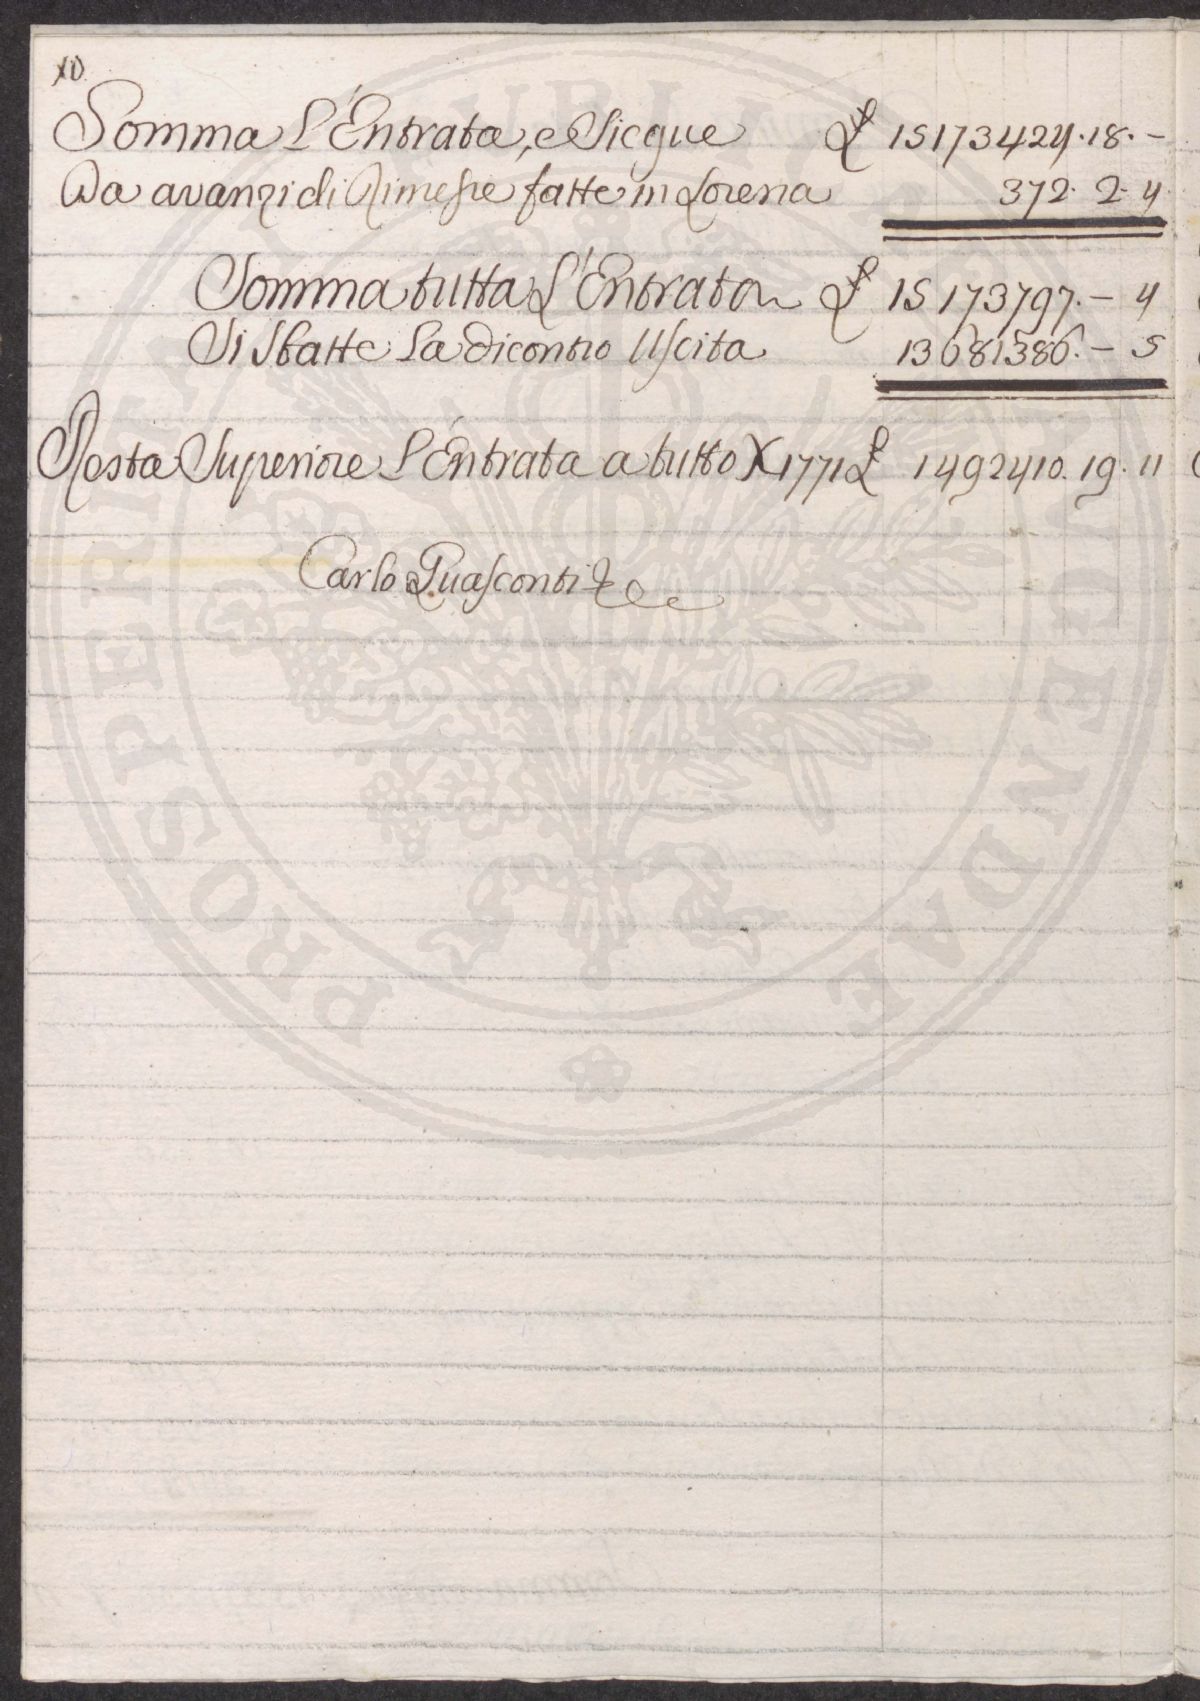 10
Somma L'Entrata, e Siegue £ 15173424.18.-
Da avanzi di Rimesse fatte in Lorena 372.2.4
Somma tutta L'Entrata £ 15173797.-4
Si Sbatte La dicontro Uscita 13681386.-5
Resta Superiore L'Entrata a tutto X 1771 £ 1492410.19.11
Carlo Guasconti
PROSPERITATI PUBLICAE AUGENDAE